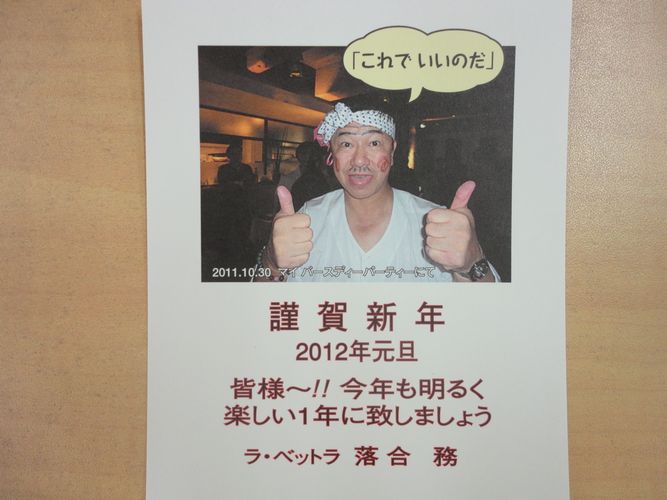 「これでいいのだ」
2011.10.30 マイ バースディーパーティーにて
謹賀新年
2012年元旦
皆様〜!! 今年も明るく
楽しい1年に致しましょう
ラ・ベットラ 落合 務